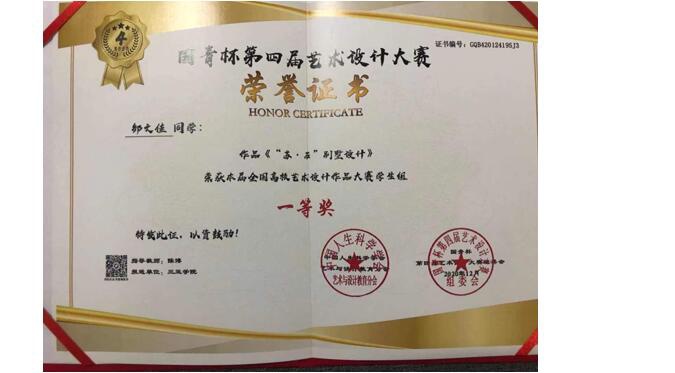 4
证书编号：GQB420124195J3
国青杯第四届艺术设计大赛
荣誉证书
HONOR CERTIFICATE
邹文佳 同学：
作品《“苏·玉”别墅设计》
荣获本届全国高校艺术设计作品大赛学生组
一等奖
特发此证，以资鼓励！
指导教师：陈博
报送单位：三亚学院
中国人生科学学会
艺术与设计教育分会
国青杯
2020年12月
组委会